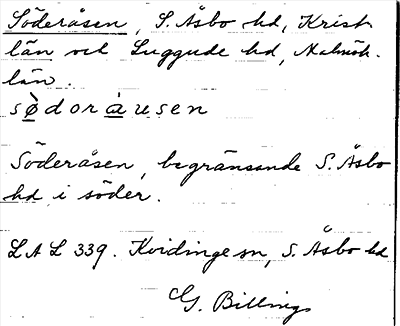 Söderåsen, S. Åsbo hd, Krist.
län och Luggude hd, Malmöh.
län.
södoråusen
Söderåsen, begränsande S. Åsbo
hd i söder.
LAL 339. Kvidinge sn, S. Åsbo hd
G. Billings